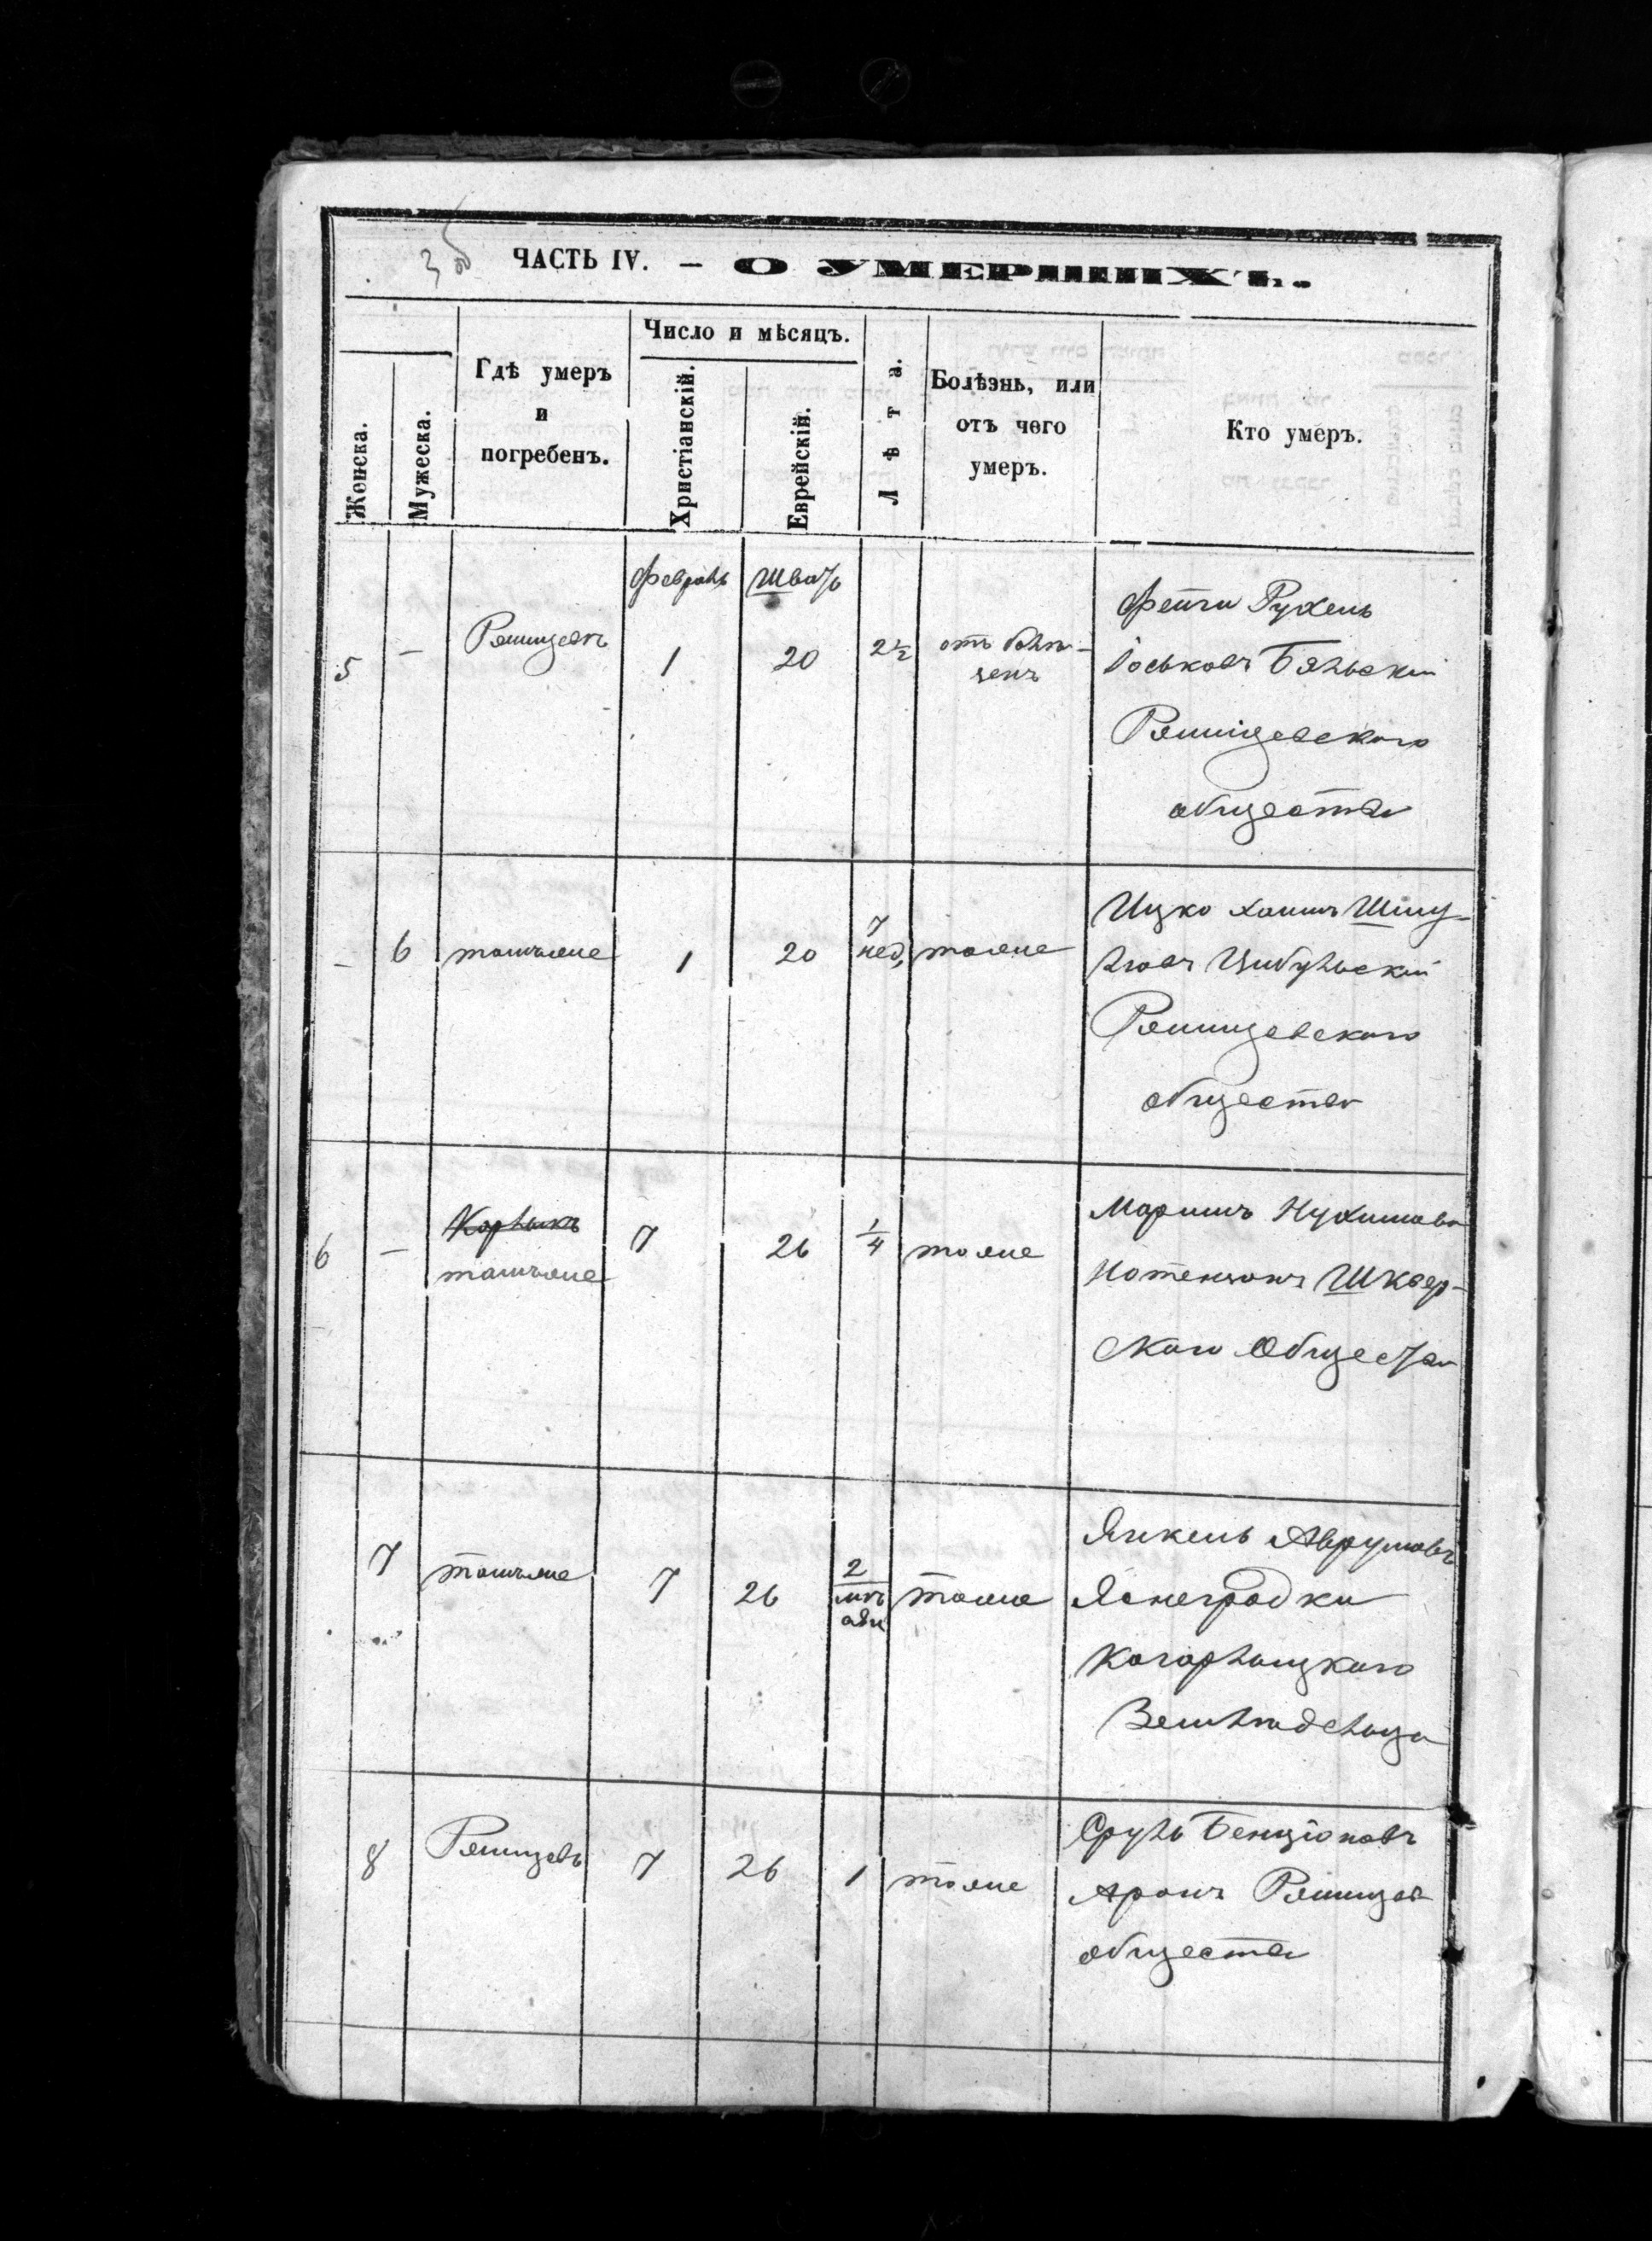 3 об
ЧАСТЬ IV. — О УМЕРШИХЪ.
Женска.
Мужеска.
Гдѣ умеръ
и
погребенъ.
Число и мѣсяцъ.
Христіанскій.
Еврейскій.
Лѣта.
Болѣзнь, или
отъ чего
умеръ.
Кто умеръ.
Февраль Шватъ
5 — Ржищевъ 1 20 2½ отъ
Фейга Рухель
Іоськовъ Бяльскій
Ржищевского
общества
— 6 тамъже 1 20 7 нед. тоже
Ицко Хаимъ Шму-
ловъ Цибульскій
Ржищевского
общества
6 — тамъже 7 26 1/4 тоже
Маріимъ Нухимова
Нотензонъ Шквер-
ского Общества
7 тамъже 7 26 2 мѣ тоже
Янкель Аврумовъ
Яснеградки
Кагарлыцкого
Земледельца
8 Ржищевъ 7 26 1 тоже
Сруль Бенціоновъ
Аронъ Ржищев
общества